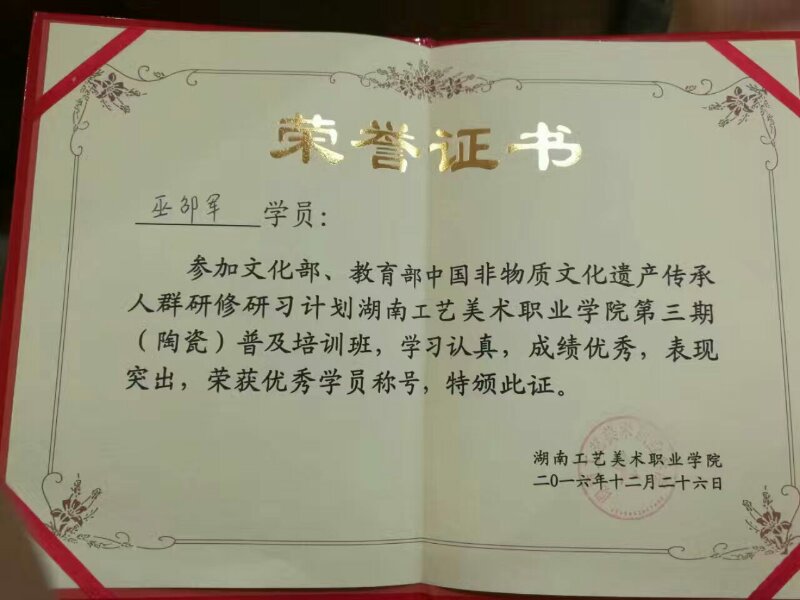 荣誉证书
巫邵军 学员：
参加文化部、教育部中国非物质文化遗产传承
人群研修研习计划湖南工艺美术职业学院第三期
（陶瓷）普及培训班，学习认真，成绩优秀，表现
突出，荣获优秀学员称号，特颁此证。
湖南工艺美术职业学院
二〇一六年十二月二十六日